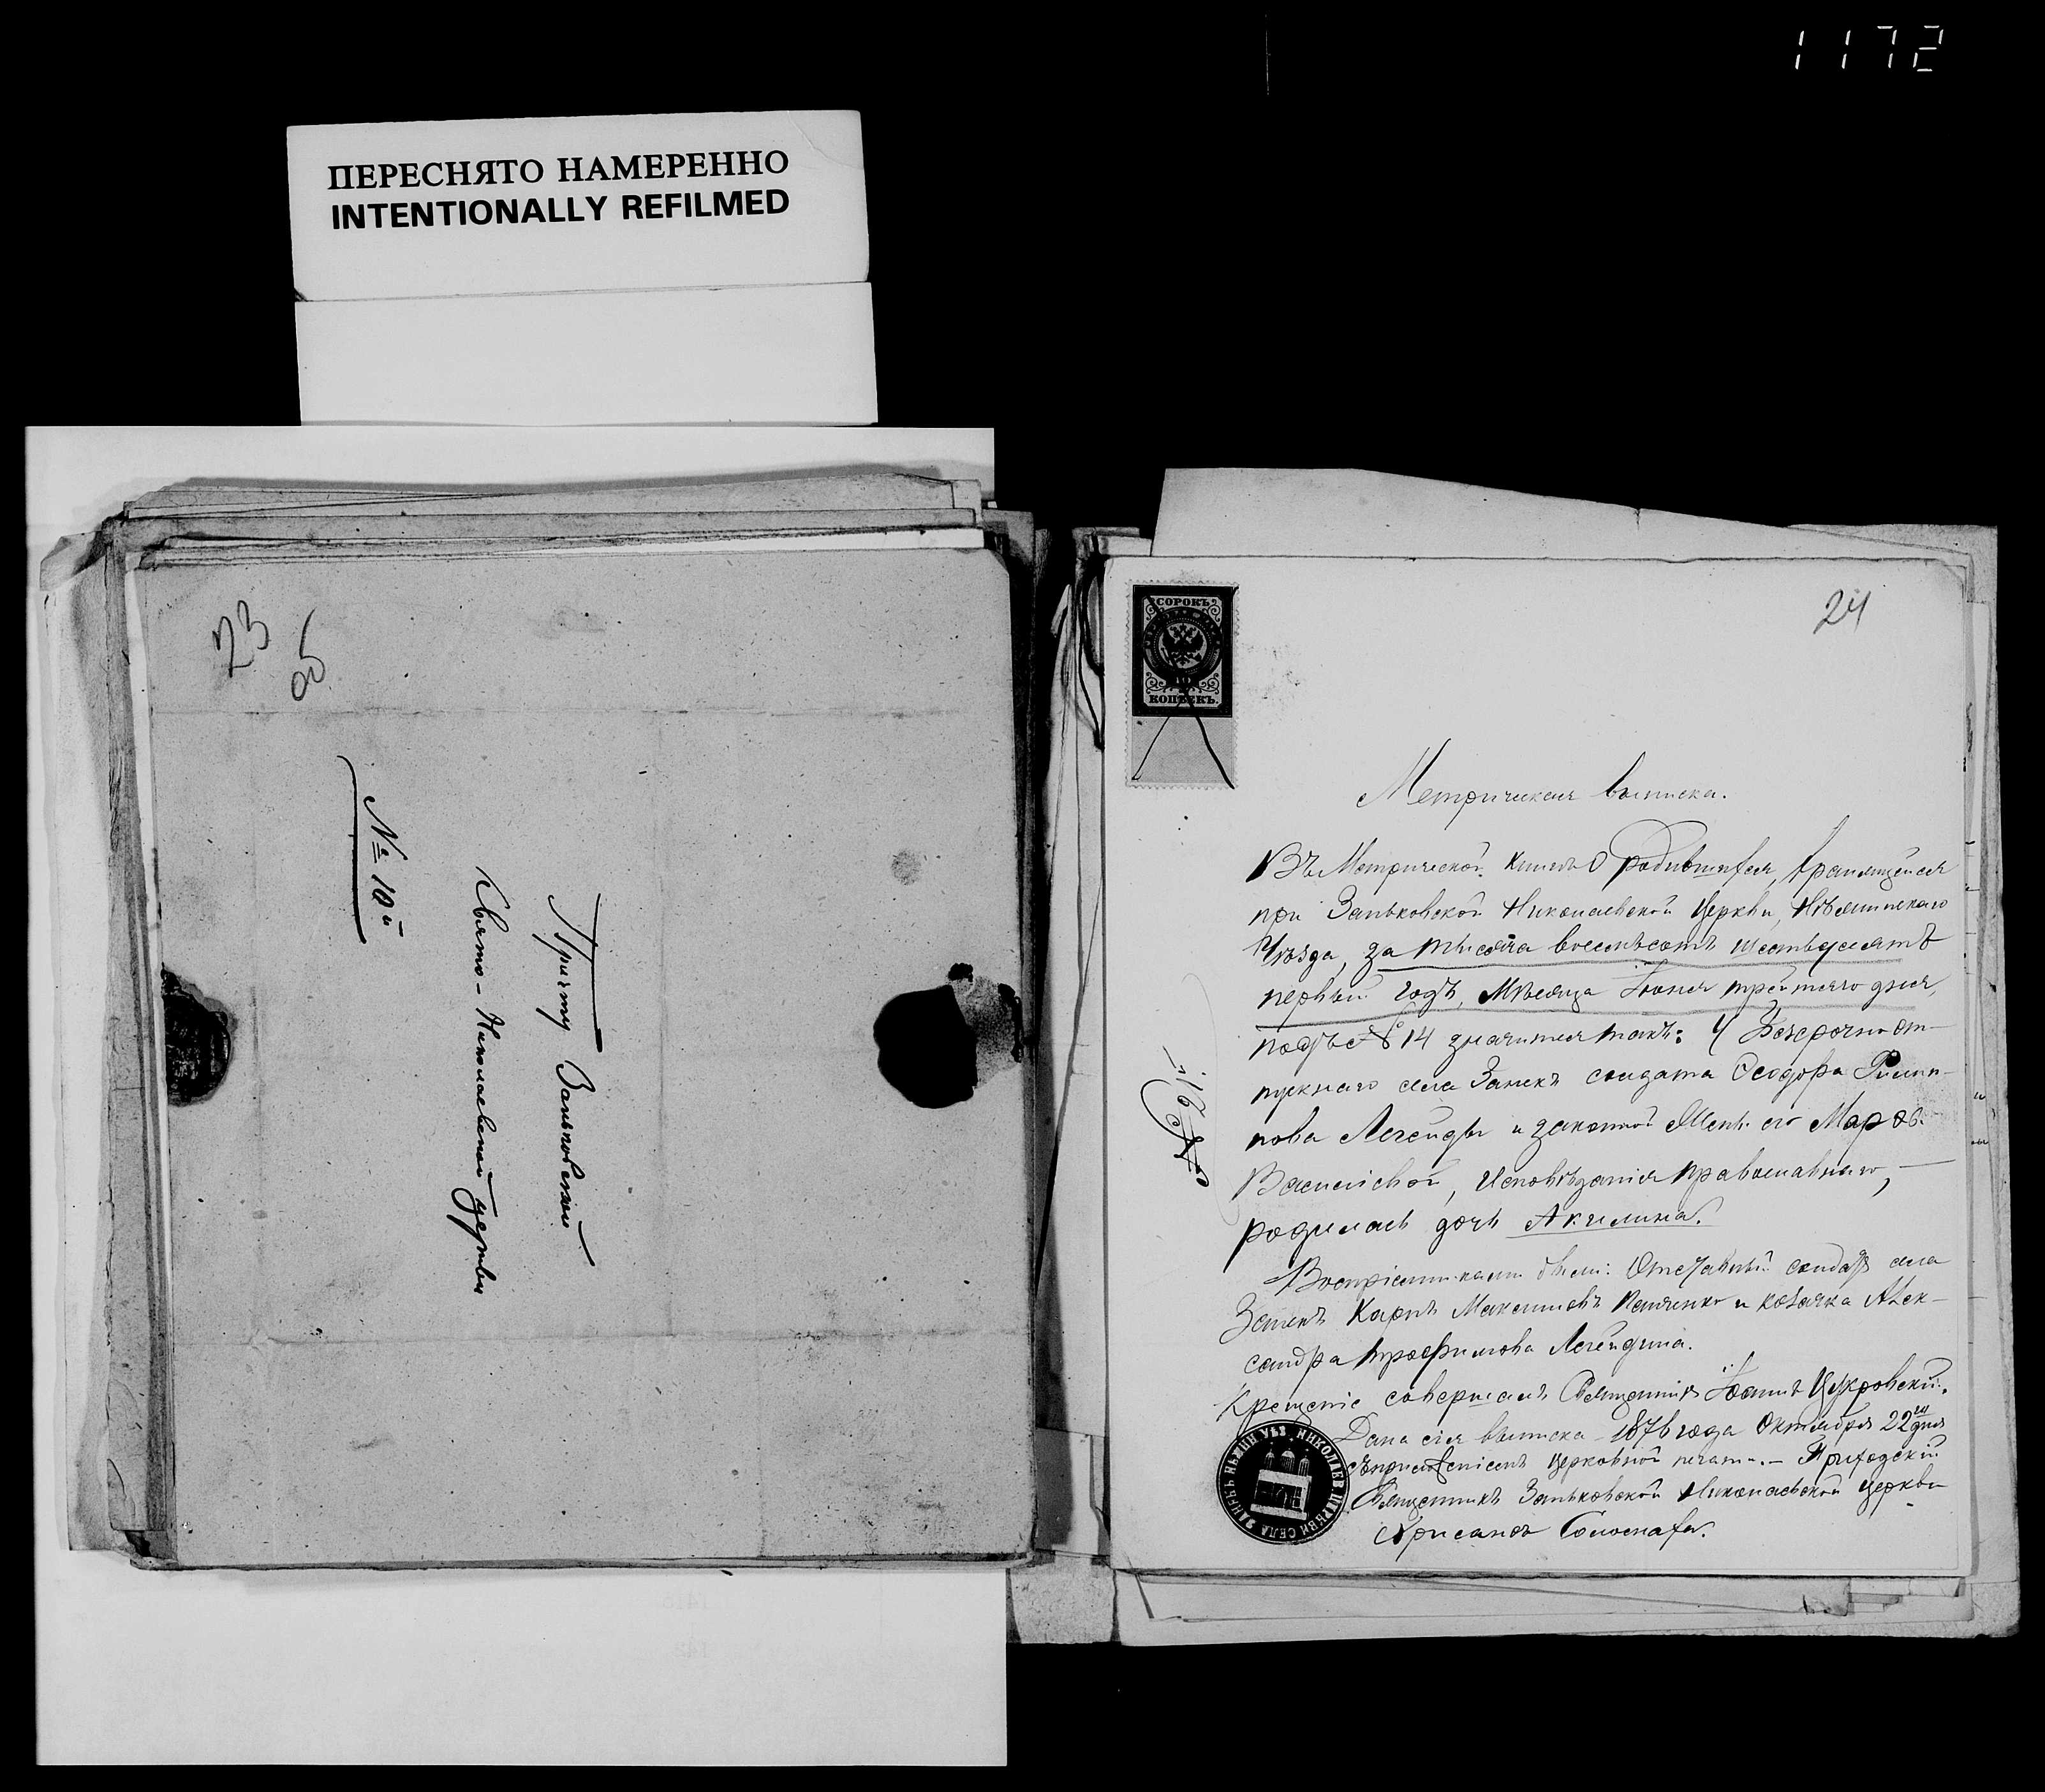 1172
ПЕРЕСНЯТО НАМЕРЕННО
INTENTIONALLY REFILMED
23
об
№ 10й
Причту Заньковской
Свято-Николаевской церкви
24
СОРОКЪ
КОПѢЕКЪ.
Метрическая выписка.
Въ Метрической книгѣ о родившихся, хранящейся
при Заньковской Николаевской Церкви, Нѣжинскаго
Уѣзда, за тысяча восемьсотъ шестьдесятъ
первый годъ, Мѣсяца Іюня третьяго дня,
подъ № 14 значится такъ: У Безсрочно от-
пускнаго села Занекъ солдата Ѳеодора Филип-
пова Легейды и законной Жены его Марѳы
Васильевой, Исповѣданія православнаго,
родилась дочь Акилина.
Воспріемниками были: Отставный солдатъ села
Занекъ Карпъ Максимовъ и козачка Алек-
сандра Трофимова Легейдина.
Крещеніе совершалъ Священникъ Іоаннъ Цукровскій.
Дана сія выписка 1876 года Октября 22го дня
съ приложеніемъ церковной печати. – Приходскій
Священникъ Заньковской Николаевской Церкви
Хрисанѳъ
НИКОЛАЕВ ЦЕРКВИ СЕЛА ЗАНЕКЪ НѢЖИН УѢЗ.